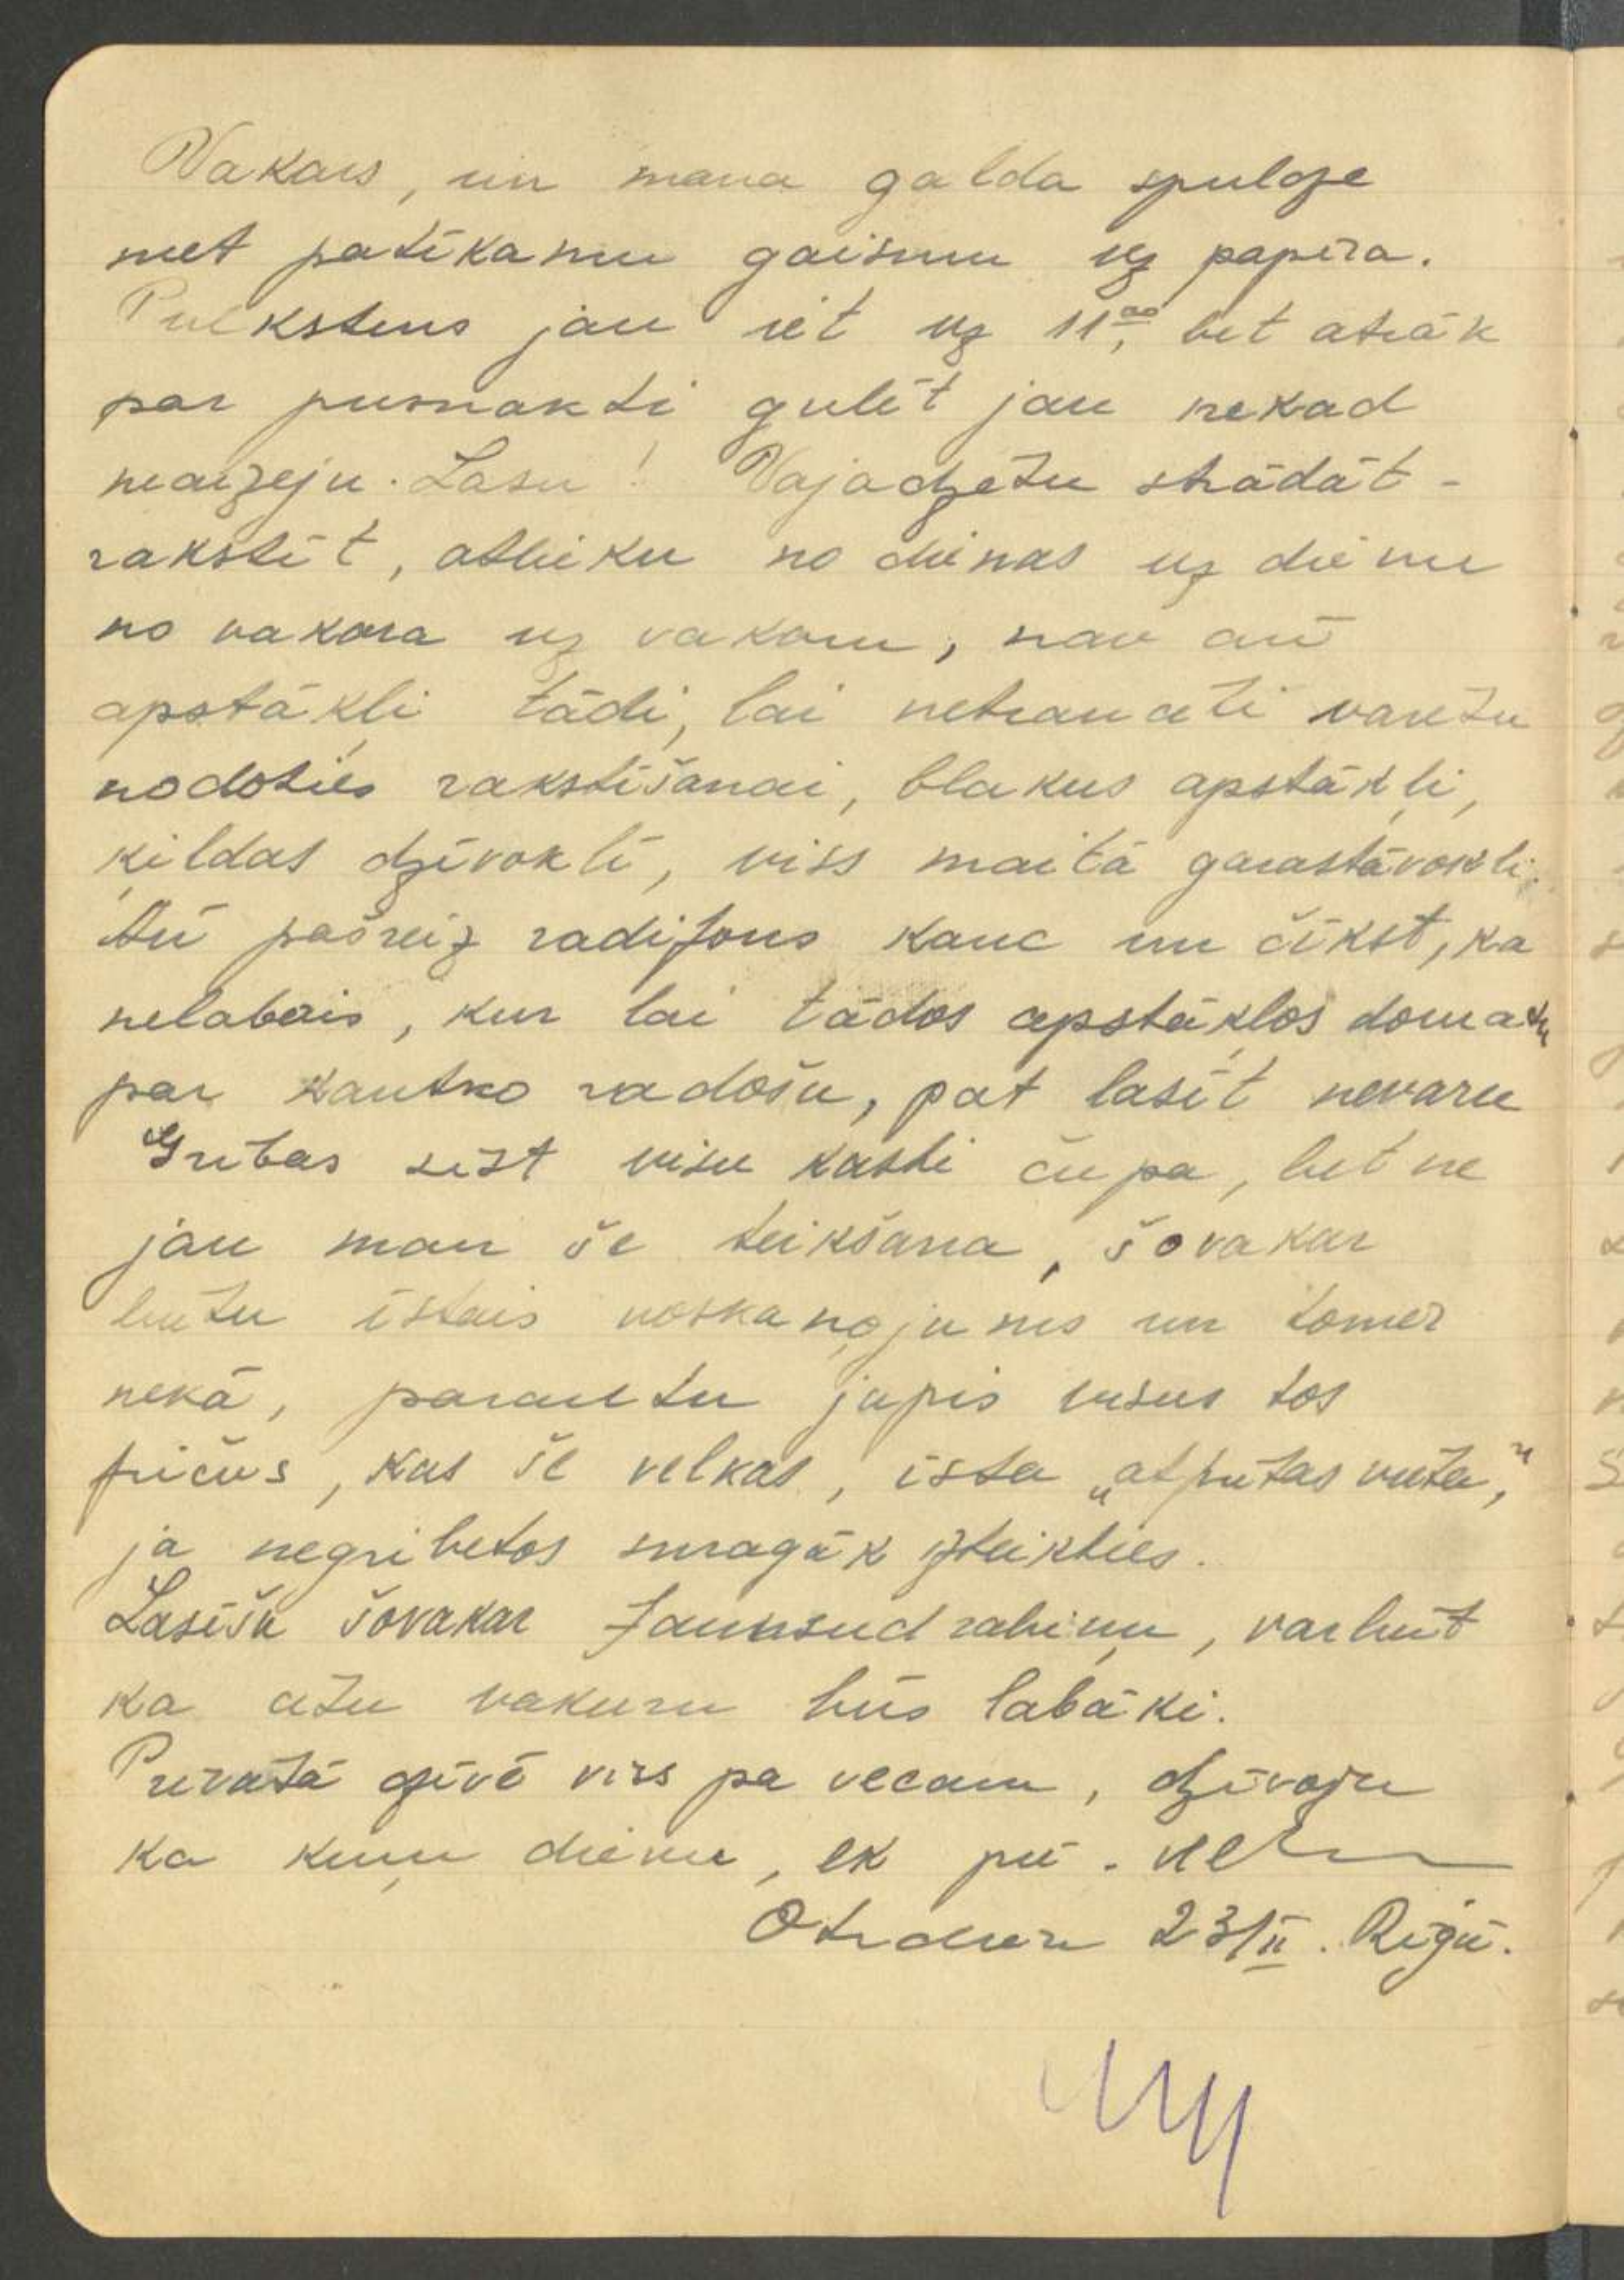 Vakars, un mana galda spuldze
met patīkamu gaismu uz papīra.
Pulkstens jau iet uz 11⁰⁰, bet atrāk
par pusnakti gulēt jau nekad
neaizeju. Lasu! Vajadzētu strādāt -
rakstīt, atlieku no dienas uz dienu
no vakara uz vakaru, nav arī
apstākļi tādi, lai netraucēti varētu
nodoties rakstīšanai, blakus apstākļi,
ķildas dzīvoklī, viss maitā garastāvokli.
Arī pašreiz radifons kauc un čīkst, ka
nelabais, kur lai tādos apstākļos domatu
par kautko radošu, pat lasīt nevaru
Gribas sist visu kasti čupa, bet ne
jau man še teikšana, šovakar
butu īstais noskaņojums un tomēr
nekā, parautu jupis visus tos
fričus, kas še velkas, ista „atputas vieta,"
ja negribetos smagāk izteikties.
Lasīšu šovakar Jaunsudrabiņu, varbut
ka citu vakaru būs labāki.
Privatā dzīvē viss pa vecam, dzīvoju
ka kuru dienu, ek pū.
Otrdien 23/II. Rīgā.